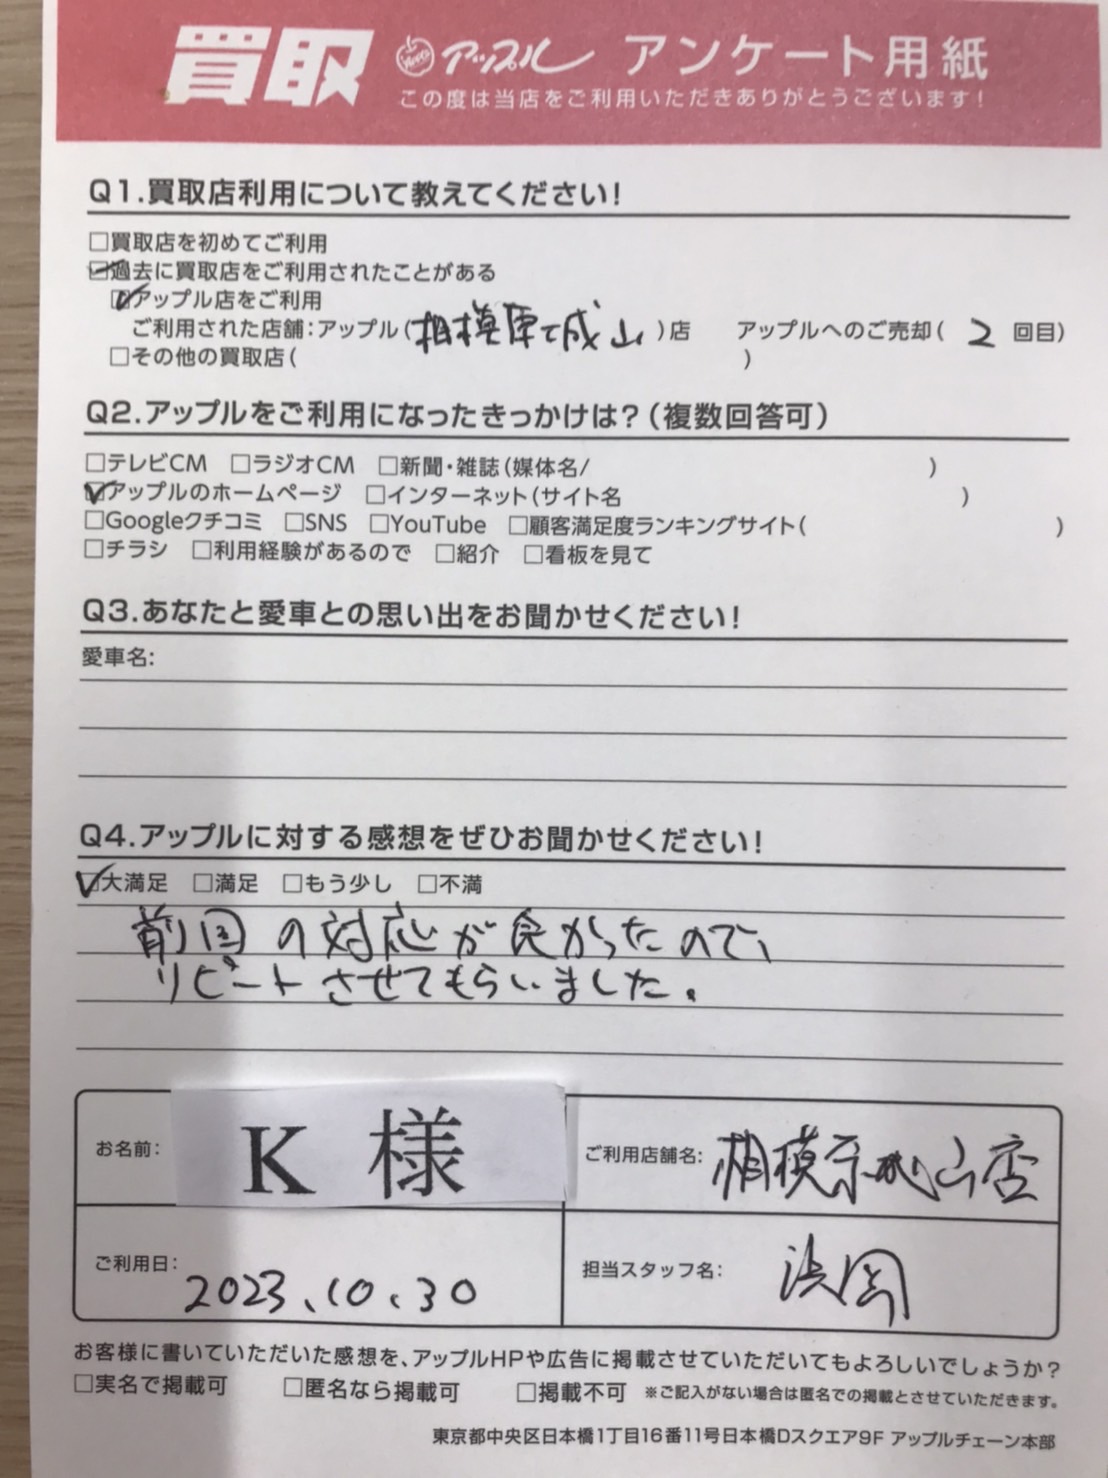 買取 アップル アンケート用紙
この度は当店をご利用いただきありがとうございます!
Q1.買取店利用について教えてください!
□買取店を初めてご利用
☑過去に買取店をご利用されたことがある
☑アップル店をご利用
ご利用された店舗:アップル(相模原て城山)店 アップルへのご売却(2回目)
□その他の買取店( )
Q2.アップルをご利用になったきっかけは?(複数回答可)
□テレビCM □ラジオCM □新聞・雑誌(媒体名/ )
☑アップルのホームページ □インターネット(サイト名 )
□Googleクチコミ □SNS □YouTube □顧客満足度ランキングサイト( )
□チラシ □利用経験があるので □紹介 □看板を見て
Q3.あなたと愛車との思い出をお聞かせください!
愛車名:
Q4.アップルに対する感想をぜひお聞かせください!
☑大満足 □満足 □もう少し □不満
前回の対応が良かったので、
リピートさせてもらいました。
お名前: K 様 ご利用店舗名: 相模原城山店
ご利用日: 2023.10.30 担当スタッフ名:
お客様に書いていただいた感想を、アップルHPや広告に掲載させていただいてもよろしいでしょうか?
□実名で掲載可 □匿名なら掲載可 □掲載不可 ※ご記入がない場合は匿名での掲載とさせていただきます。
東京都中央区日本橋1丁目16番11号日本橋Dスクエア9F アップルチェーン本部